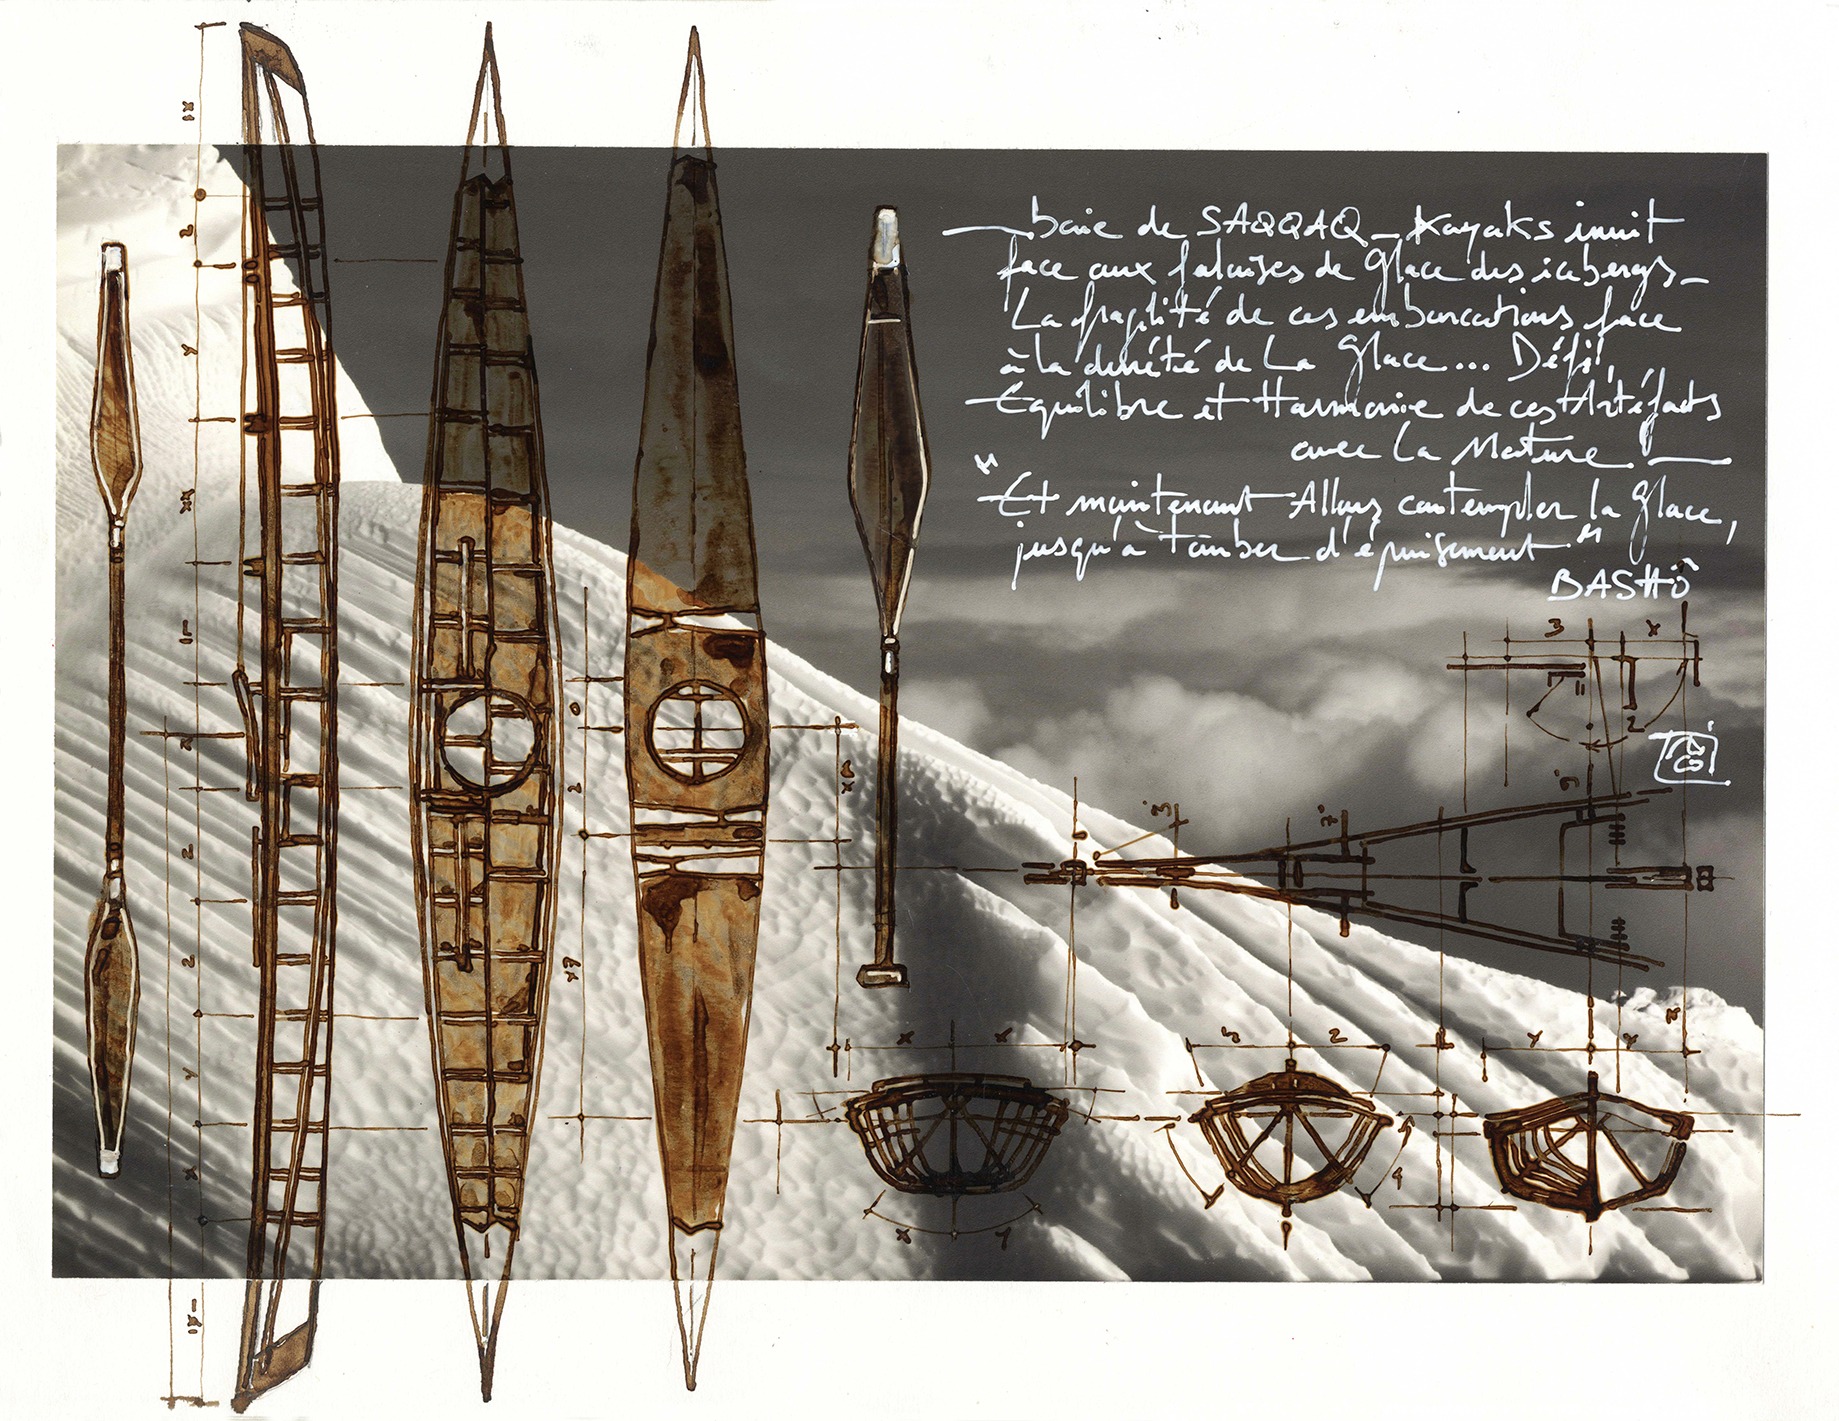 baie de SAQQAQ _ Kayaks inuit
face aux falaises de Glace des icebergs _
La fragilité de ces embarcations face
à la dureté de La Glace... Défi,
Equilibre et Harmonie de ces Artéfacts
avec La Nature
"Et maintenant Allons contempler la Glace,
jusqu'à tomber d'épuisement"
BASHÔ